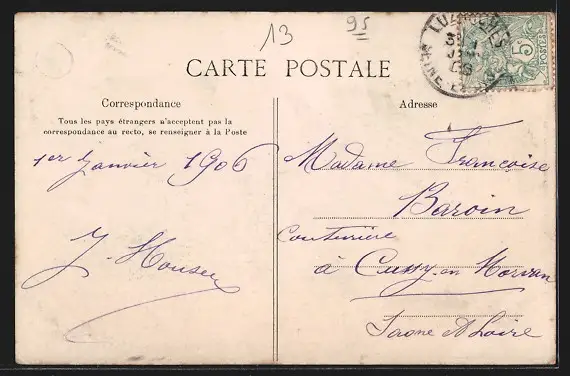 13
95
5
POSTES
CARTE POSTALE
Correspondance
Tous les pays étrangers n'acceptent pas la
correspondance au recto, se renseigner à la Poste
1er Janvier 1906
J.
Adresse
Madame Françoise
Baroin
Couturière
à Cussy-en Morvan
Saone & Loire